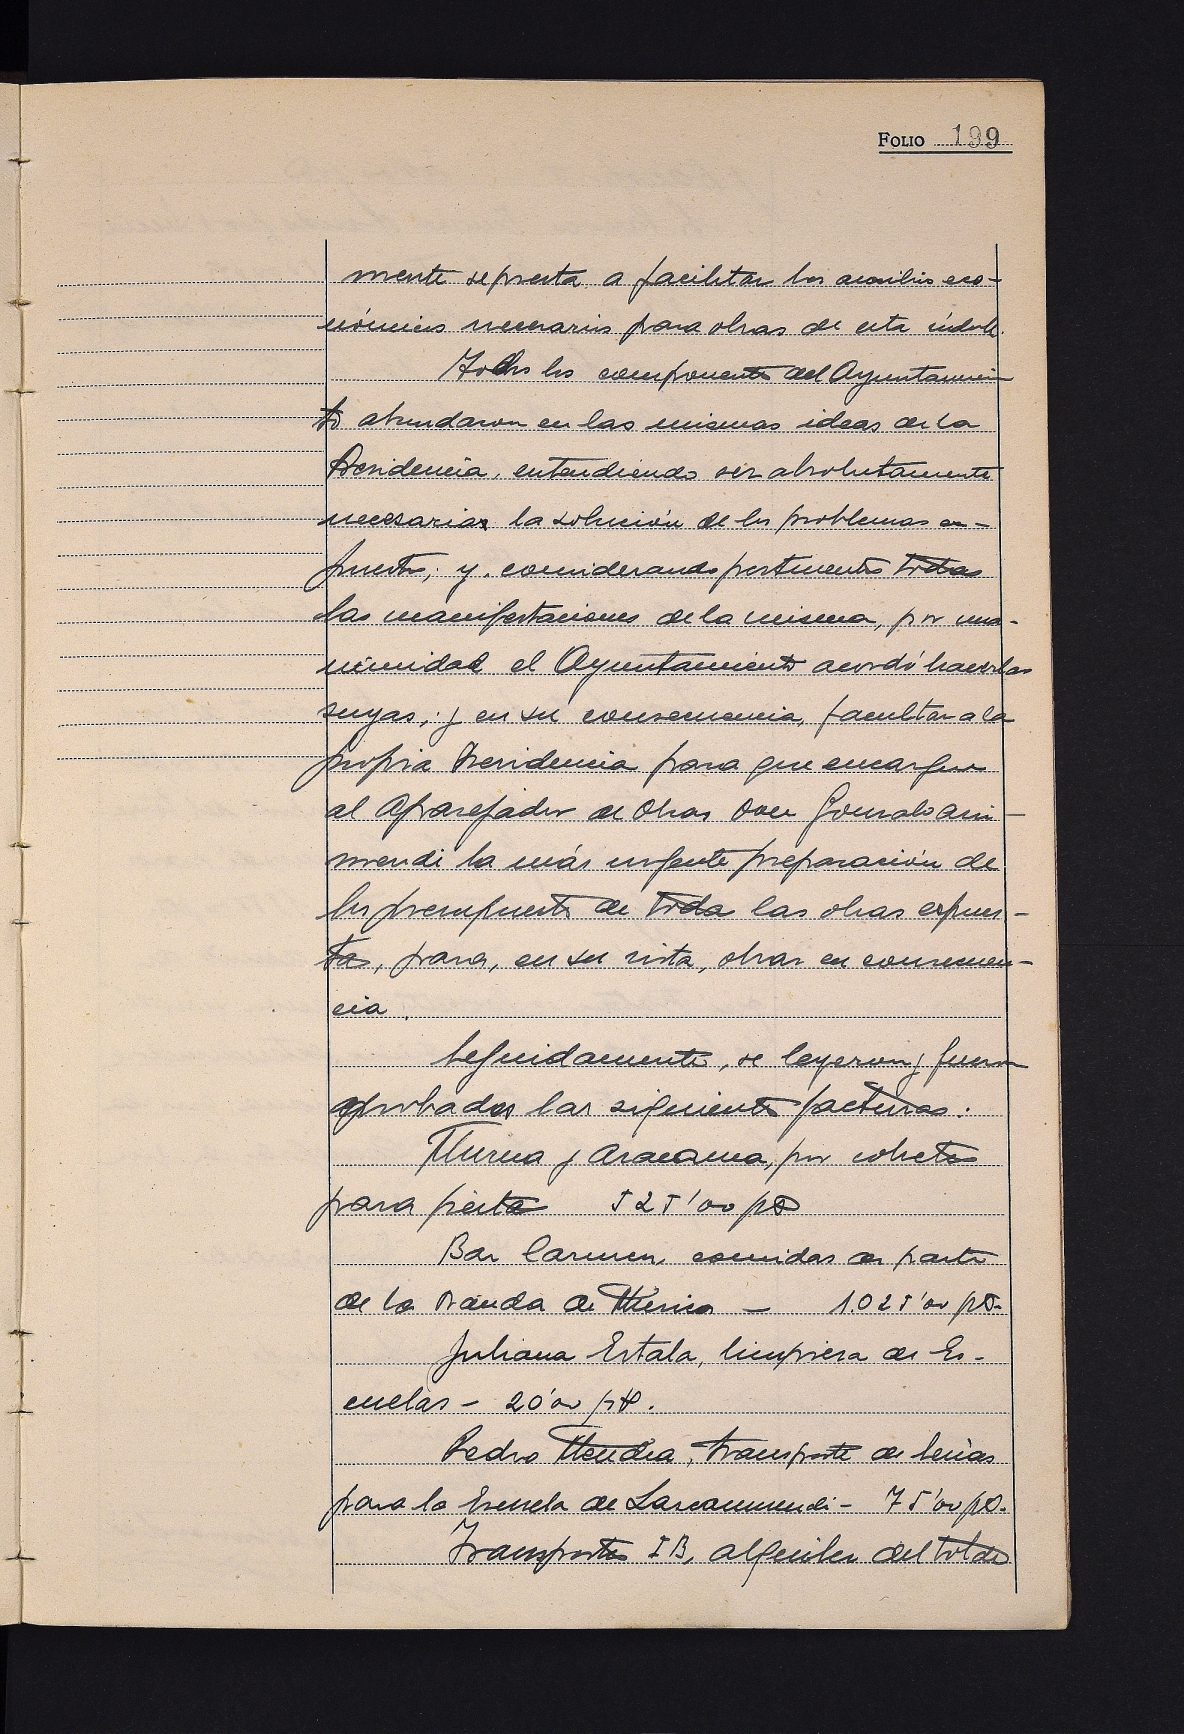 FOLIO 199
mente se presta a facilitar los auxilios eco-
nómicos necesarios para obras de esta índole.
Todos los componentes del Ayuntamien
to abundaron en las mismas ideas de la
Presidencia, entendiendo ser absolutamente
necesarias la solución de los problemas ex-
puestos; y, considerando pertinentes todas
las manifestaciones de la misma, por una-
nimidad el Ayuntamiento acordó hacerlas
suyas; y en su consecuencia, facultar a la
propia Presidencia para que encargue
al Aparejador de Obras Don Gonzalo Ariz-
mendi la más urgente preparación de
los presupuestos de toda las obras expues-
tas, para, en su vista, obrar en consecuen-
cia.
Seguidamente, se leyeron y fueron
aprobadas las siguientes facturas:
y Aracama, por cohetes
para fiestas 525'00 pts
Bar Carmen, comidas a parte
de la Banda de Música — 1.025'00 pts.
Juliana Estala, limpieza de Es-
cuelas – 20'00 pts.
Pedro Mendia, transporte de leñas
para la Escuela de Larcanmendi – 75'00 pts.
Transportes IB, alquiler del toldo